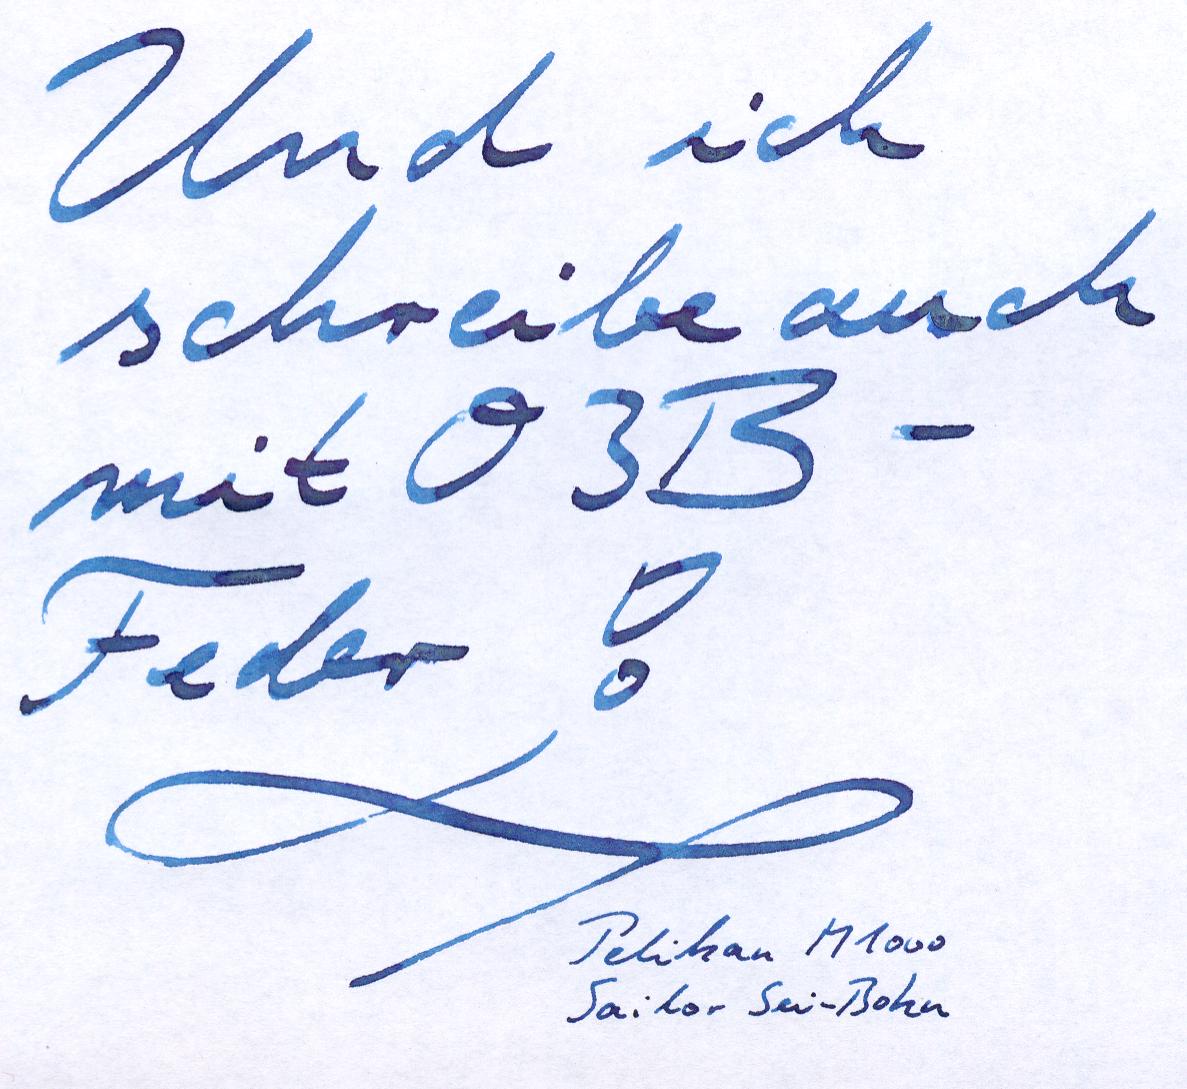 Und ich
schreibe auch
mit O3B-
Feder!
Pelikan M1000
Sailor Sei-Boku